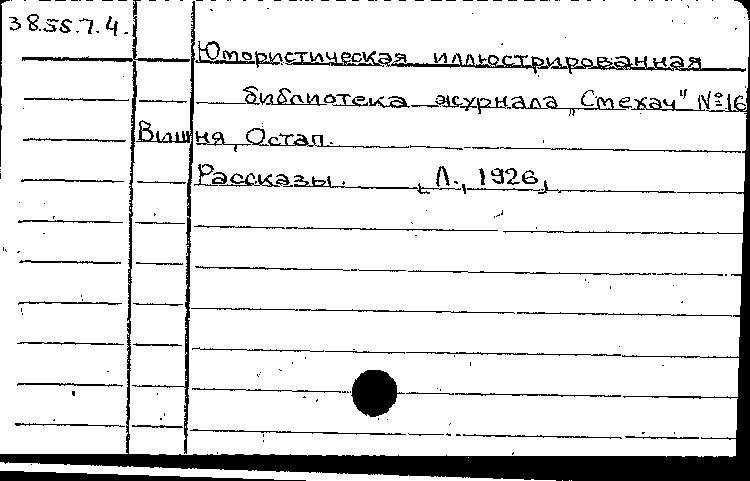 38.55.7.4.
Юмористическая иллюстрированная
библиотека журнала „Смехач" №16
Вишня, Остап.
Рассказы. [Л., 1926]